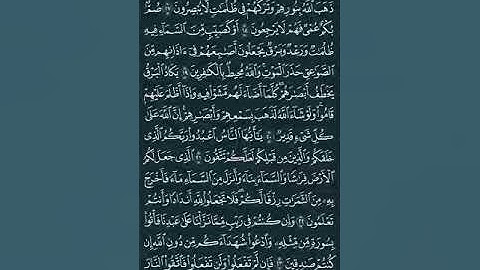 ذَهَبَ ٱللَّهُ بِنُورِهِمْ وَتَرَكَهُمْ فِى ظُلُمَٰتٍ لَّا يُبْصِرُونَ ١٧ صُمٌّۢ
بُكْمٌ عُمْىٌ فَهُمْ لَا يَرْجِعُونَ ١٨ أَوْ كَصَيِّبٍ مِّنَ ٱلسَّمَآءِ فِيهِ
ظُلُمَٰتٌ وَرَعْدٌ وَبَرْقٌ يَجْعَلُونَ أَصَٰبِعَهُمْ فِىٓ ءَاذَانِهِم مِّنَ
ٱلصَّوَٰعِقِ حَذَرَ ٱلْمَوْتِ وَٱللَّهُ مُحِيطٌۢ بِٱلْكَٰفِرِينَ ١٩ يَكَادُ ٱلْبَرْقُ
يَخْطَفُ أَبْصَٰرَهُمْ كُلَّمَآ أَضَآءَ لَهُم مَّشَوْا۟ فِيهِ وَإِذَآ أَظْلَمَ عَلَيْهِمْ
قَامُوا۟ وَلَوْ شَآءَ ٱللَّهُ لَذَهَبَ بِسَمْعِهِمْ وَأَبْصَٰرِهِمْ إِنَّ ٱللَّهَ عَلَىٰ
كُلِّ شَىْءٍ قَدِيرٌ ٢٠ يَٰٓأَيُّهَا ٱلنَّاسُ ٱعْبُدُوا۟ رَبَّكُمُ ٱلَّذِى
خَلَقَكُمْ وَٱلَّذِينَ مِن قَبْلِكُمْ لَعَلَّكُمْ تَتَّقُونَ ٢١ ٱلَّذِى جَعَلَ لَكُمُ
ٱلْأَرْضَ فِرَٰشًا وَٱلسَّمَآءَ بِنَآءً وَأَنزَلَ مِنَ ٱلسَّمَآءِ مَآءً فَأَخْرَجَ
بِهِۦ مِنَ ٱلثَّمَرَٰتِ رِزْقًا لَّكُمْ فَلَا تَجْعَلُوا۟ لِلَّهِ أَندَادًا وَأَنتُمْ
تَعْلَمُونَ ٢٢ وَإِن كُنتُمْ فِى رَيْبٍ مِّمَّا نَزَّلْنَا عَلَىٰ عَبْدِنَا فَأْتُوا۟
بِسُورَةٍ مِّن مِّثْلِهِۦ وَٱدْعُوا۟ شُهَدَآءَكُم مِّن دُونِ ٱللَّهِ إِن
كُنتُمْ صَٰدِقِينَ ٢٣ فَإِن لَّمْ تَفْعَلُوا۟ وَلَن تَفْعَلُوا۟ فَٱتَّقُوا۟ ٱلنَّارَ